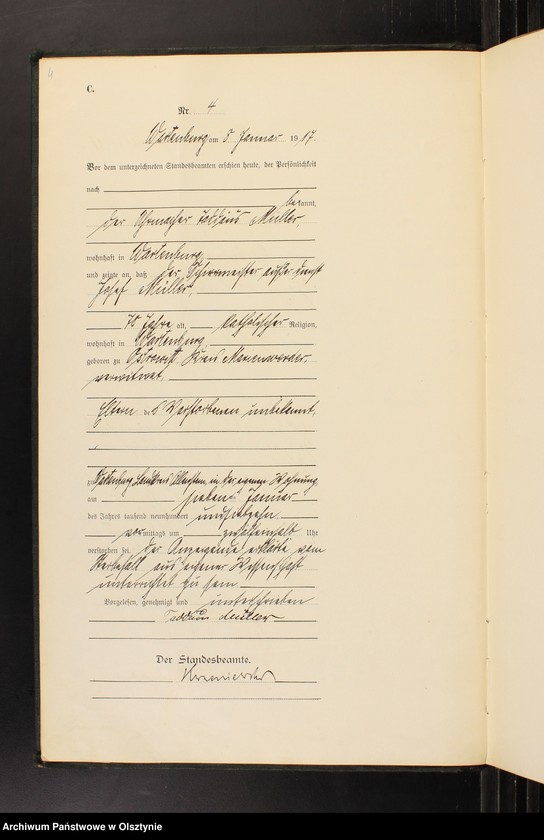 4
C.
Nr. 4
Wartenburg am 8 Januar 1917.
Vor dem unterzeichneten Standesbeamten erschien heute, der Persönlichkeit
nach
bekannt,
der Uhrmacher Taddäus Müller,
wohnhaft in Wartenburg,
und zeigte an, daß der Schirrmeister außer Dienst
Josef Müller,
70 Jahre alt, katholischer Religion,
wohnhaft in Wartenburg,
geboren zu Kreis Marienwerder,
verwitwet.
Eltern des Verstorbenen unbekannt.
zu Wartenburg Landkreis Allenstein, in der eigenen Wohnung
am siebenten Januar
des Jahres tausend neunhundert und siebzehn
vormittags um Uhr
verstorben sei. Der Anzeigende erklärte vom
Sterbefall aus eigener Wissenschaft
unterrichtet zu sein.
Vorgelesen, genehmigt und unterschrieben
Taddäus Müller
Der Standesbeamte.
Archiwum Państwowe w Olsztynie